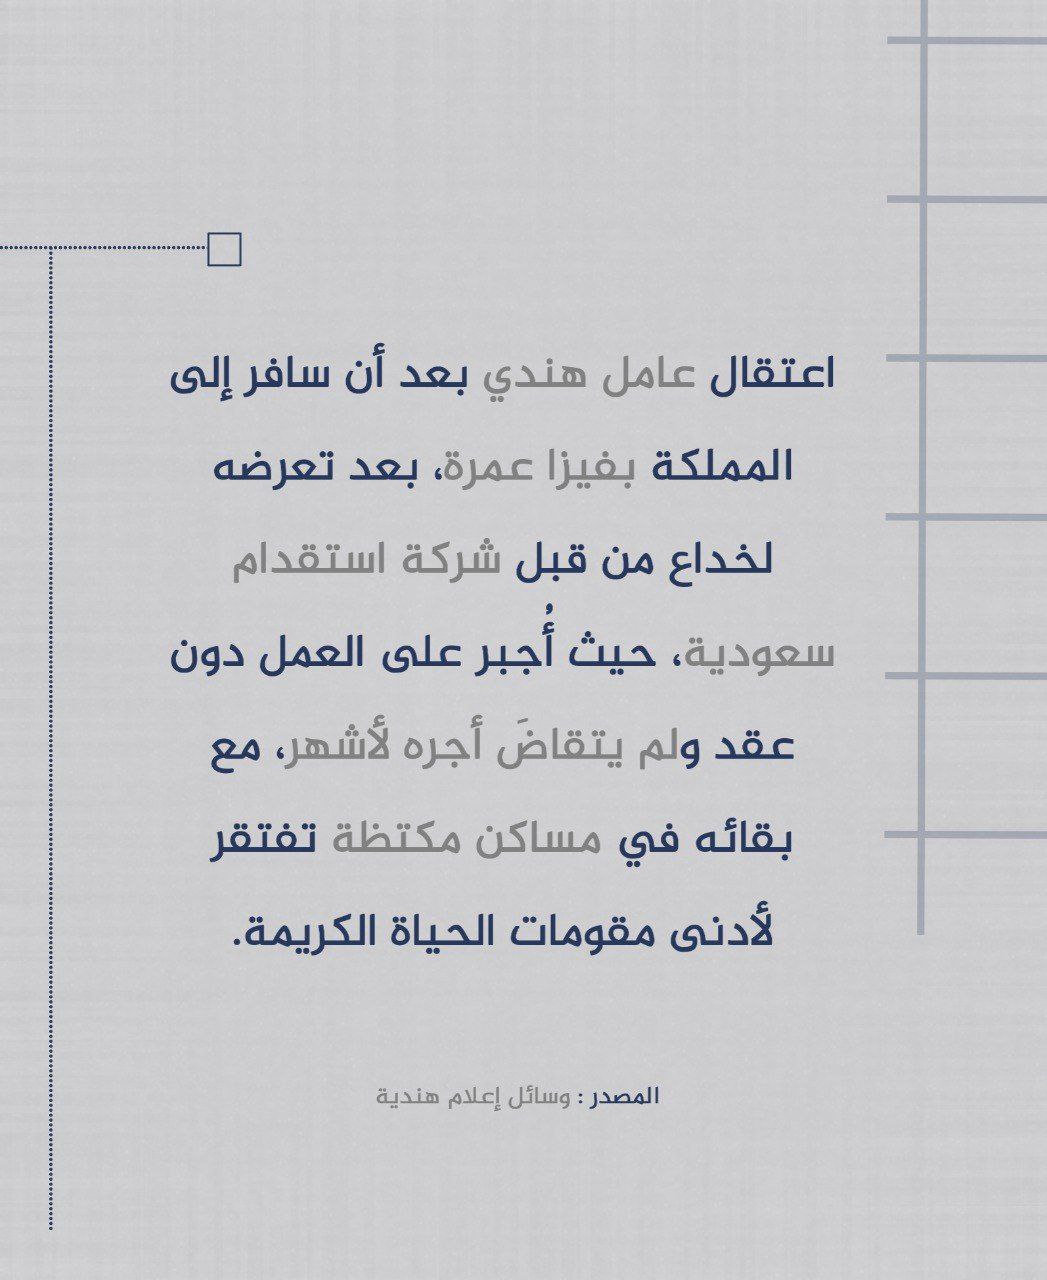 اعتقال عامل هندي بعد أن سافر إلى
المملكة بفيزا عمرة، بعد تعرضه
لخداع من قبل شركة استقدام
سعودية، حيث أُجبر على العمل دون
عقد ولم يتقاضَ أجره لأشهر، مع
بقائه في مساكن مكتظة تفتقر
لأدنى مقومات الحياة الكريمة.
المصدر : وسائل إعلام هندية